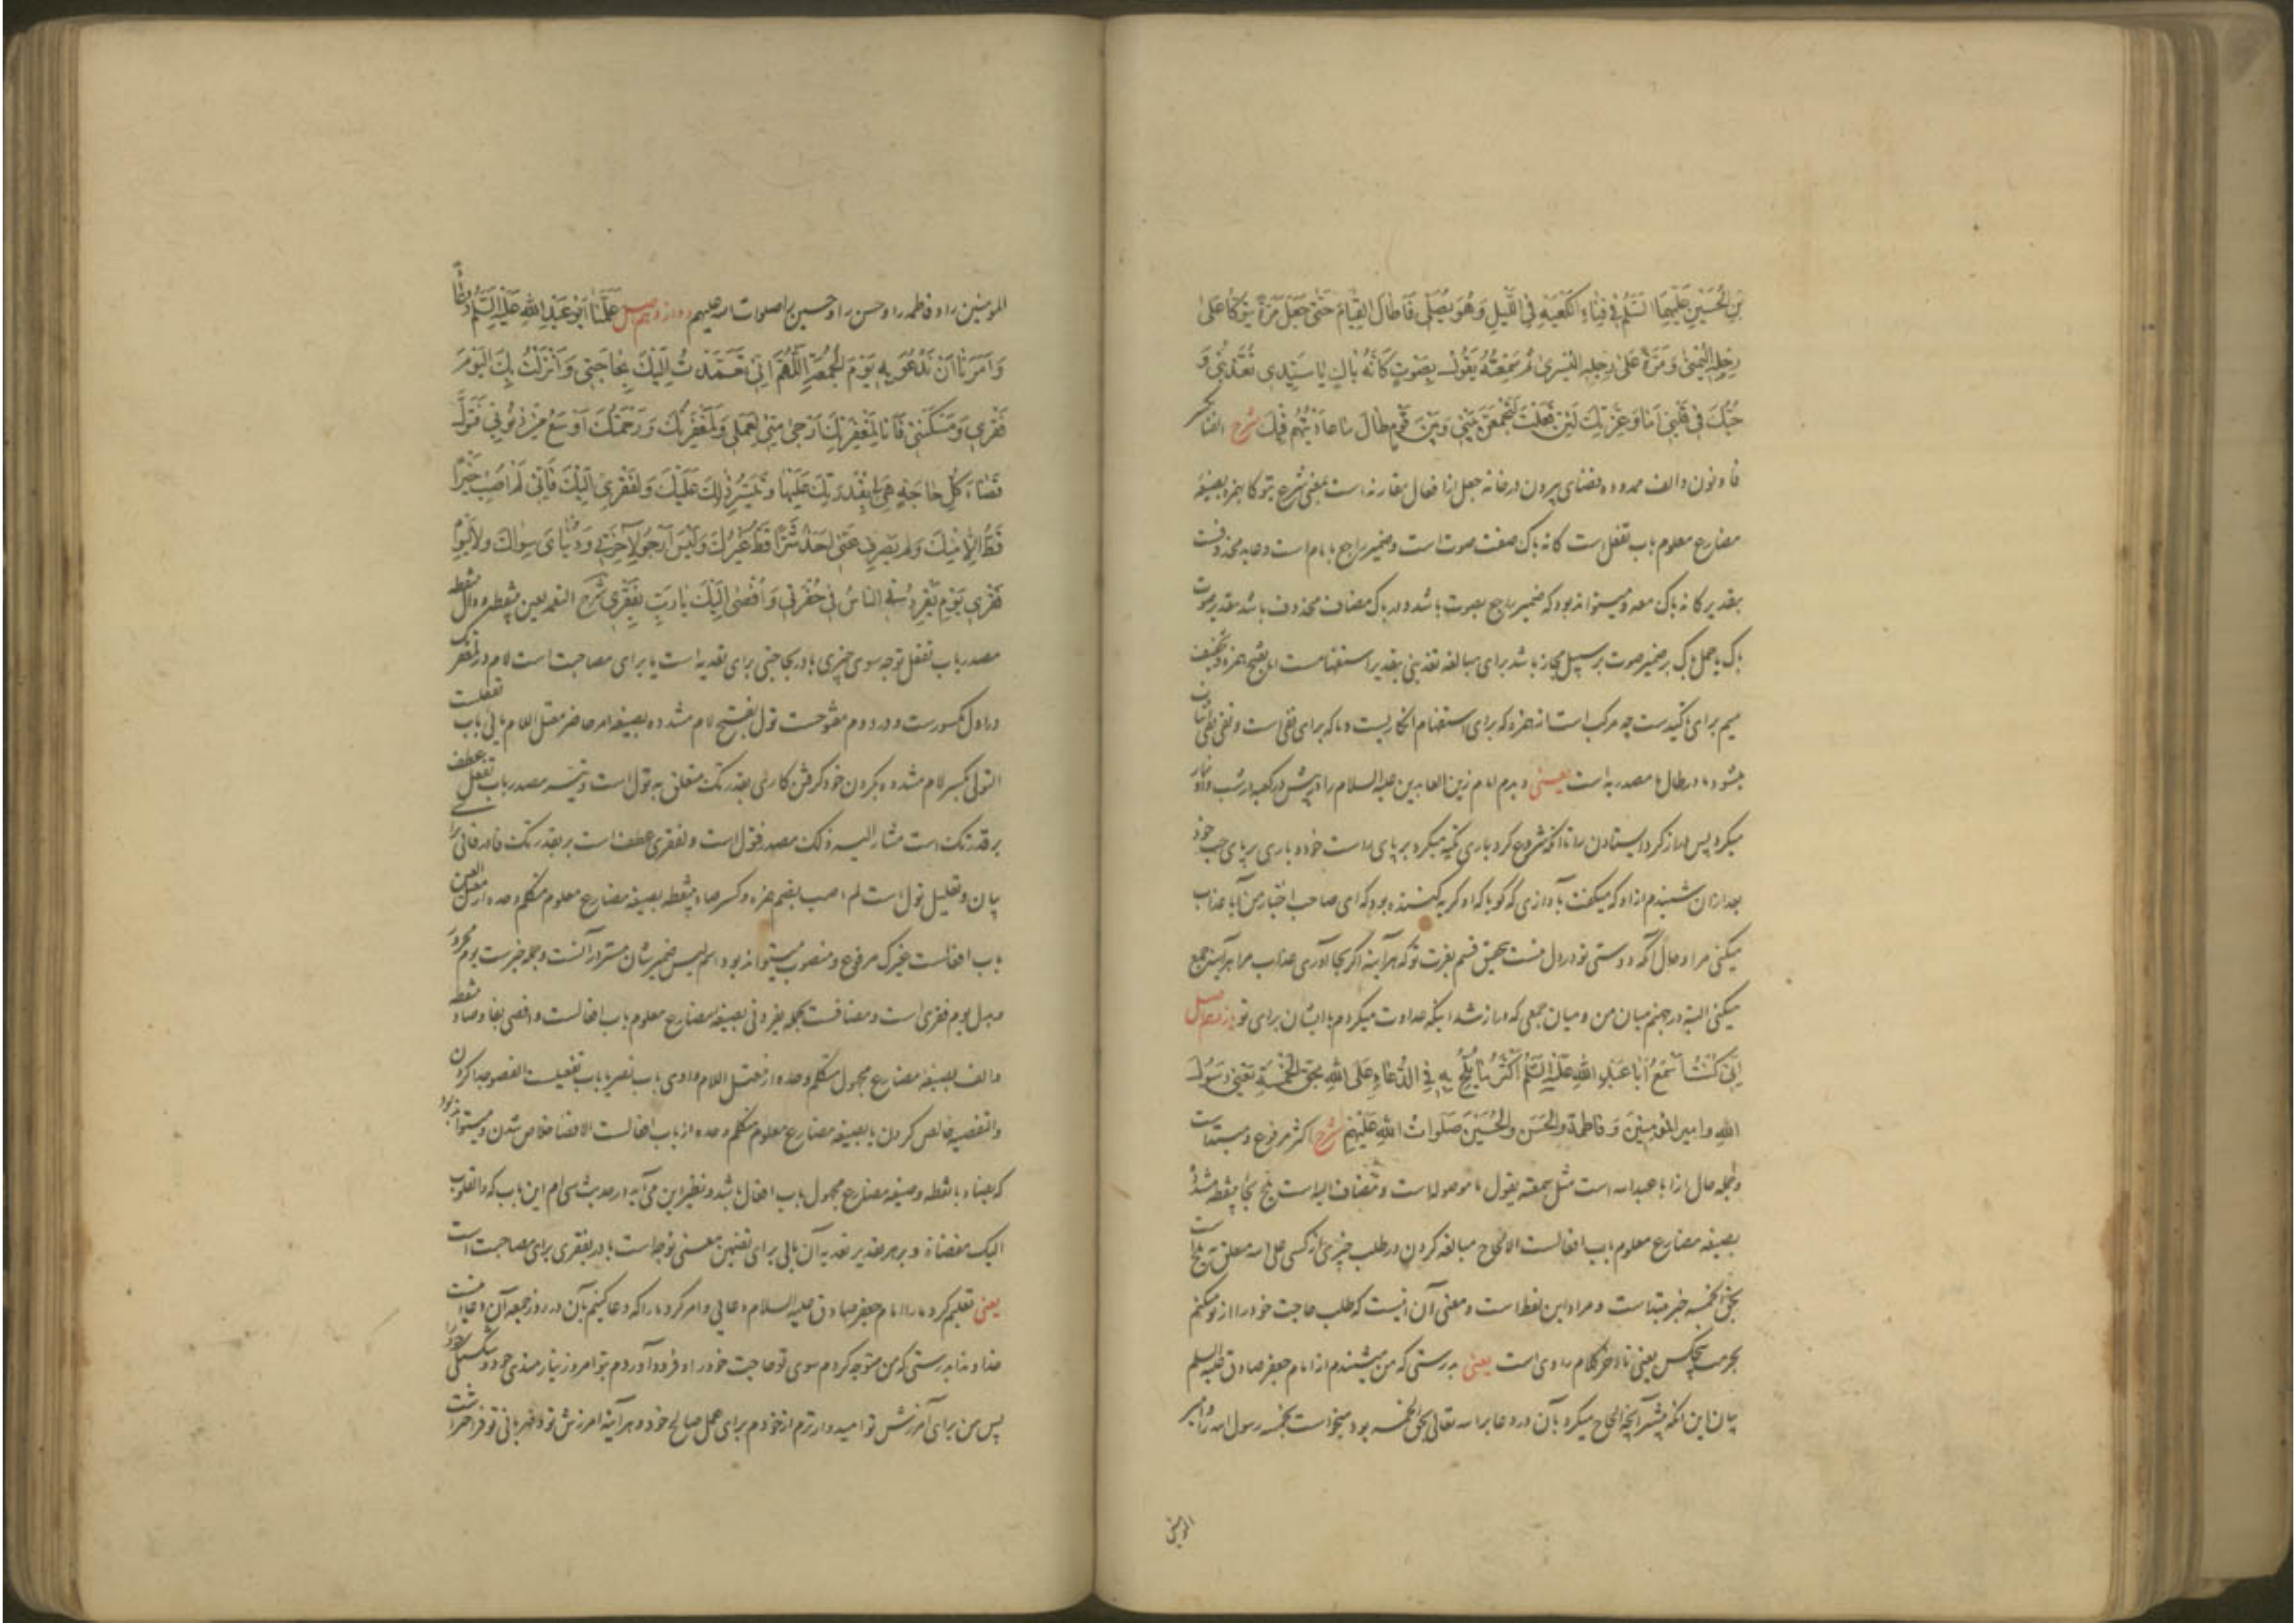 بْنِ الْحُسَيْنِ عَلَيْهِمَا السَّلَمُ فِي فِنَاءِ الْكَعْبَةِ فِي اللَّيْلِ وَهُوَ يُصَلِّي فَأَطَالَ الْقِيَامَ حَتّىٰ جَعَلَ مَرَّةً يَتَوَكَّأُ عَلىٰ
رِجْلِهِ الْيُمْنىٰ وَمَرَّةً عَلىٰ رِجْلِهِ الْيُسْرىٰ ثُمَّ سَمِعْتُهُ يَقُولُ بِصَوْتٍ كَأَنَّهُ بَاكٍ يَا سَيِّدِي تُعَذِّبُنِي وَ
حُبُّكَ فِي قَلْبِي أَمَا وَعِزَّتِكَ لَئِنْ فَعَلْتَ لَتَجْمَعَنَّ بَيْنِي وَبَيْنَ قَوْمٍ طَالَ مَا عَادَيْتُهُمْ فِيكَ شرح الفنا بکسر
فا و نون و الف ممدوده فضای بیرون درخانه جعل از افعال مقاربه است بمعنی شرع یتوکا بهمزه بصیغهٔ
مضارع معلوم باب تفعل است کانه باک صفت صوت است و ضمیر راجع بامام است و عاید محذوفست
بتقدیر کانه باک معه و میتواند بود که ضمیر راجع بصوت باشد و در باک مضاف محذوف باشد بتقدیر صوت
باک یا حمل باک بر ضمیر صوت بر سبیل مجاز باشد برای مبالغه تعذبنی بتقدیر استفهامست اما بفتح همزه و تخفیف
میم برای تاکیدست چه مرکب است از همزه که برای استفهام انکاریست و ما که برای نفی است و نفی نفی اثبات
میشود ما در طال ما مصدریه است یعنی دیدم امام زین العابدین علیه السلام را در پیش در کعبه در شب و او نماز
میکرد پس دراز کرد ایستادن را تا آنکه شروع کرد باری تکیه میکرد بر پای راست خود و باری بر پای چپ خود
بعد ازان شنیدم ازو که میگفت بآوازی که گویا که او گریه کننده بود که ای صاحب اختیار من آیا عذاب
میکنی مرا و حال آنکه دوستی تو در دل منست بتحقیق قسم بعزت تو که هرآینه اگر بجا آوری عذاب مرا هرآینه جمع
میکنی البته در جهنم میان من و میان جمعی که دراز شد اینکه عداوت میکردم با ایشان برای تو یازدهم اصل
إِنِّي كُنْتُ أَسْمَعُ أَبَا عَبْدِ اللّٰهِ عَلَيْهِ السَّلَمُ أَكْثَرُ مَا يُلِحُّ بِهِ فِي الدُّعَاءِ عَلَى اللّٰهِ بِحَقِّ الْخَمْسَةِ يَعْنِي رَسُولَ
اللّٰهِ وَأَمِيرَ الْمُؤْمِنِينَ وَفَاطِمَةَ وَالْحَسَنَ وَالْحُسَيْنَ صَلَوَاتُ اللّٰهِ عَلَيْهِمْ شرح اکثر مرفوع و مبتداست
و جمله حال از ابا عبدالله است مثل سمعته یقول ما موصوله است و مضاف الیه است یلح بحا بینقطه مشدد
بصیغهٔ مضارع معلوم باب افعالست الالحاح مبالغه کردن در طلب چیزی از کسی علی الله متعلق به یلح است
بحق الخمسه خبر مبتداست و مراد این لفظ است و معنی آن اینست که طلب حاجت خود را از تو میکنم
بحرمت پنجکس یعنی تا آخر کلام راوی است یعنی بدرستی که من میشنیدم از امام جعفر صادق علیه السلم
بیان این آنکه بیشتر آنچه الحاح میکرد بآن در دعا بر الله تعالی بحق الخمسه بود میخواست بخمسه رسول الله را و امیر
المومنین
المومنین را و فاطمه را و حسن را و حسین را صلوات الله علیهم دوازدهم اصل عَلَّمَنَا أَبُو عَبْدِ اللّٰهِ عَلَيْهِ السَّلَمُ دُعَاءً
وَأَمَرَنَا أَنْ نَدْعُوَ بِهِ يَوْمَ الْجُمُعَةِ اللّٰهُمَّ إِنِّي تَعَمَّدْتُ إِلَيْكَ بِحَاجَتِي وَأَنْزَلْتُ بِكَ الْيَوْمَ
فَقْرِي وَمَسْكَنَتِي فَأَنَا لِمَغْفِرَتِكَ أَرْجىٰ مِنِّي لِعَمَلِي وَلَمَغْفِرَتُكَ وَرَحْمَتُكَ أَوْسَعُ مِنْ ذُنُوبِي فَتَوَلَّ
قَضَاءَ كُلِّ حَاجَةٍ هِيَ لِي بِقُدْرَتِكَ عَلَيْهَا وَتَيَسُّرِ ذٰلِكَ عَلَيْكَ وَلِفَقْرِي إِلَيْكَ فَإِنِّي لَمْ أُصِبْ خَيْرًا
قَطُّ إِلَّا مِنْكَ وَلَمْ يَصْرِفْ عَنِّي أَحَدٌ شَرًّا قَطُّ غَيْرُكَ وَلَيْسَ أَرْجُو لِآخِرَتِي وَدُنْيَايَ سِوَاكَ وَلَا لِيَوْمِ
فَقْرِي يَوْمَ يُفْرِدُنِي النَّاسُ فِي حُفْرَتِي وَأُفْضِي إِلَيْكَ يَا رَبِّ بِفَقْرِي شرح التعمد بعین بینقطه و دال بینقطه
مصدر باب تفعل توجه سوی چیزی با در بحاجتی برای تعدیه است یا برای مصاحبت است لام در لمغفرتک
در اول مکسورست و در دوم مفتوحست تول بفتح لام مشدده بصیغهٔ امر حاضر معتل اللام یائی باب تفعلست
التولی بکسر لام مشدده بگردن خود گرفتن کاری بقدرتک متعلق به تول است و تیسر مصدر باب تفعل عطف
بر قدرتک است مشار الیه ذلک مصدر فتول است و لفقری عطف است بر بقدرتک فا در فانی برای
بیان و تعلیل تول است لم اصب بضم همزه و کسر صاد بینقطه بصیغهٔ مضارع معلوم متکلم وحده از معتل العین
باب افعالست غیرک مرفوع و منصوب میتواند بود اسم لیس ضمیر شان مستتر در آنست و جمله خبرست یوم مجرور
بدل یوم فقری است و مضافست بجمله یفردنی بصیغهٔ مضارع معلوم باب افعالست و افضی بفا و صاد بینقطه
و الف بصیغهٔ مضارع مجهول متکلم وحده از معتل اللام واوی باب نصر یا باب تفعیلست الفصو جدا کردن
والتفصیه خالص کردن یا بصیغهٔ مضارع معلوم متکلم وحده از باب افعالست الافصا خلاص شدن و میتواند بود
که بضاد بانقطه و صیغهٔ مضارع مجهول باب افعال باشد و نظیر این می‌آید در حدیث سی ام این باب که والقلوب
الیک مفضاة و بر هر تقدیر تعدیه آن بالی برای تضمین معنی توجه است با در بفقری برای مصاحبت است
یعنی تعلیم کرد مارا امام جعفر صادق علیه السلام دعایی و امر کرد مارا که دعا کنیم بآن در روز جمعه آن دعا اینست
خداوندا بدرستی که من متوجه کردم سوی تو حاجت خود را و فرود آوردم بتو امروز نیازمندی خود و شکستگی خود را
پس من برای آمرزش تو امیدوارترم از خودم برای عمل صالح خود و هرآینه آمرزش تو و مهربانی تو فراختر است